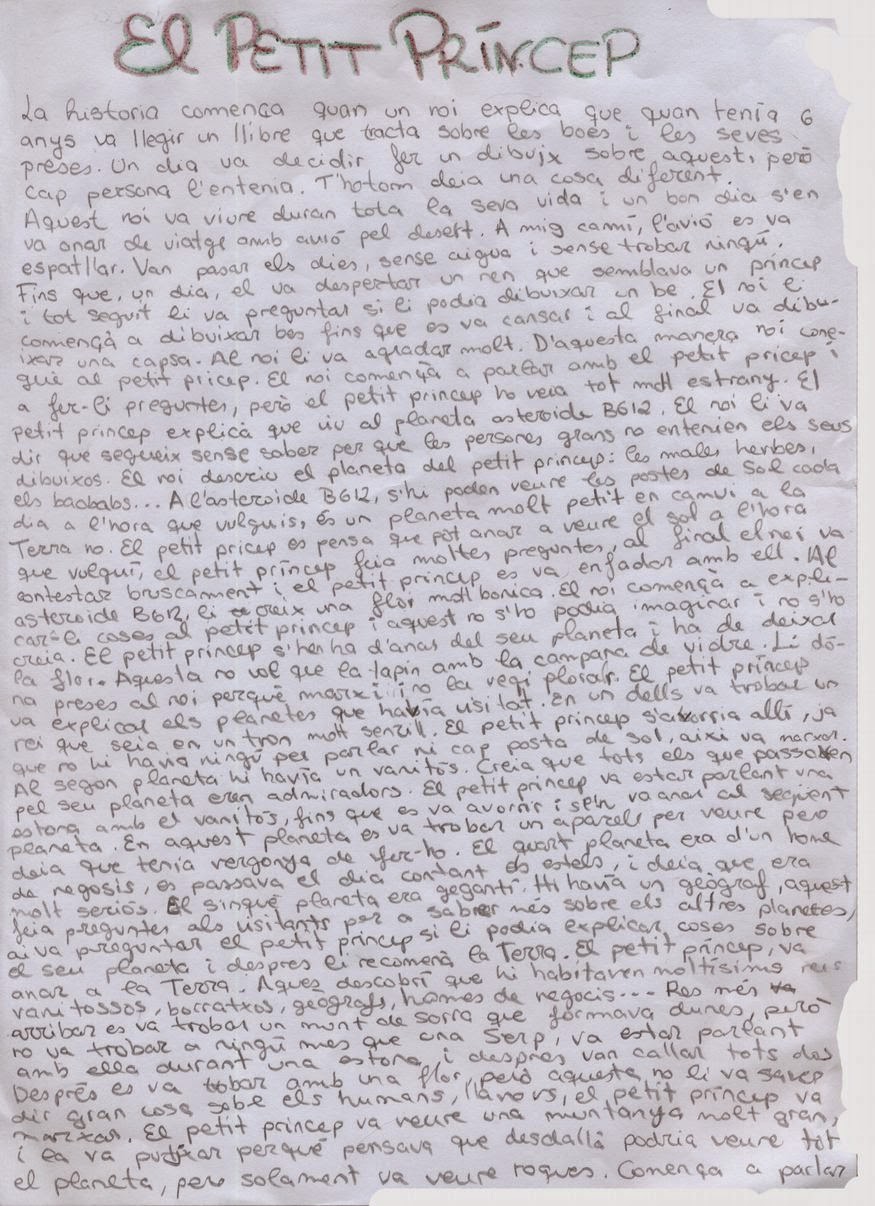 El PETIT PRÍNCEP
La historia comença quan un noi explica que quan tenía 6
anys va llegir un llibre que tracta sobre les boes i les seves
preses. Un dia va decidir fer un dibuix sobre aquest, però
cap persona l'entenia. Thotom deia una cosa diferent.
Aquest noi va viure duran tota la seva vida i un bon dia s'en
va anar de viatge amb avió pel desert. A mig camí, l'avió es va
espatllar. Van pasar els dies, sense aigua i sense trobar ningú.
Fins que, un dia, el va despertar un nen que semblava un príncep
i tot seguit li va preguntar si li podia dibuixar un be. El noi li
començà a dibuixar bes fins que es va cansar i al final va dibu-
ixar una capsa. Al noi li va agradar molt. D'aquesta manera noi cone-
gué al petit pricep. El noi començà a parlar amb el petit pricep i
a fer-li preguntes, però el petit príncep ho veia tot molt estrany. El
petit príncep explicà que viu al planeta asteroide B612. El noi li va
dir que segueix sense saber per que les persones grans no entenien els seus
dibuixos. El noi descriu el planeta del petit príncep: les males herbes,
els baobabs... A l'asteroide B612, s'hi poden veure les postes de Sol cada
dia a l'hora que vulguis, és un planeta molt petit en camvi a la
Terra no. El petit pricep es pensa que pot anar a veure el sol a l'hora
que volgui, el petit príncep feia moltes preguntes, al final el noi va
contestar bruscament i el petit príncep es va enfadar amb ell. Al
asteroide B612, li creix una flor molt bonica. El noi començà a expli-
car-li coses al petit príncep i aquest no s'ho podia imaginar i no s'ho
creia. El petit príncep s'hen ha d'anar del seu planeta i ha de deixar
la flor. Aquesta no vol que la tapin amb la campana de vidre. Li dó-
na preses al noi perquè marxi i no la vegi plorar. El petit príncep
va explicar els planetes que havía visitat. En un dells va trobar un
rei que seia en un tron molt senzill. El petit príncep s'avorria allí, ja
que no hi havia ningú per parlar ni cap posta de sol, així va marxar.
Al segon planeta hi havía un vanitós. Creia que tots els que passaven
pel seu planeta eren admiradors. El petit príncep va estar parlant una
estona amb el vanitós, fins que es va avorrir i s'en va anar al següent
planeta. En aquest planeta es va trobar un aparell per veure però
deia que tenía vergonya de fer-ho. El quart planeta era d'un home
de negosis, es passava el dia contant els estels, i deia que era
molt seriós. El sinqué planeta era gegantí. Hi havía un geògraf, aquest
feia preguntes als visitants per a saber més sobre els altres planetes,
ai va preguntar el petit príncep si li podia explicar coses sobre
el seu planeta i despres li recomenà la Terra. El petit príncep, va
anar a la Terra. Aques descobrí que hi habitaven moltísims reis
vanitossos, borratxos, geògrafs, homes de negocis... Res més
arribar es va trobar un munt de sorra que formava dunes, però
no va trobar a ningú mes que una Serp, va estar parlant
amb ella durant una estona, i despres van callar tots dos
Després es va tobar amb una flor, però aquesta no li va saver
dir gran cosa sobe els humans, llavors, el petit príncep va
marxar. El petit príncep va veure una muntanya molt gran,
i la va putjxar perquè pensava que desdallà podria veure tot
el planeta, pero solament va veure roques. Comença a parlar